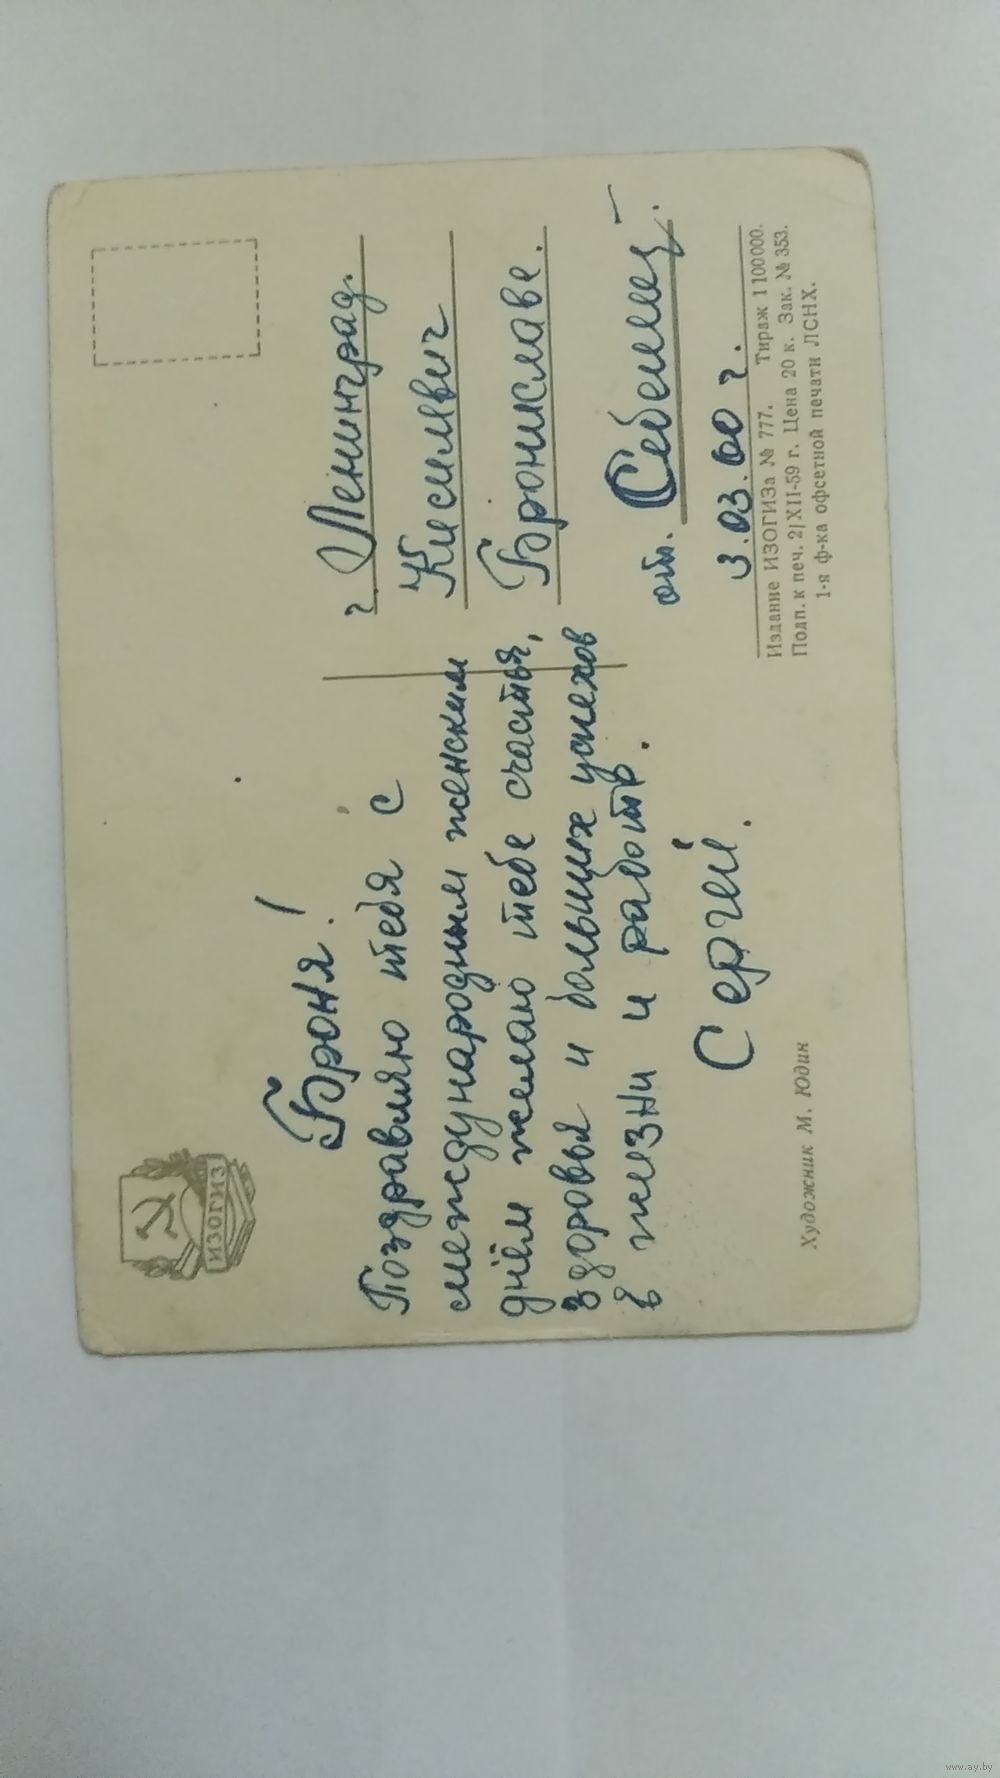 ИЗОГИЗ
Броня!
Поздравляю тебя с
международным женским
днём желаю тебе счастья,
здоровья и больших успехов
в жизни и работе.
Сергей.
Художник М. Юдин
г. Ленинград.
Кисилевич
Брониславе.
от.
3.03.60 г.
Издание ИЗОГИЗа № 777. Тираж 1 100 000.
Подп. к печ. 2/XII-59 г. Цена 20 к. Зак. № 353.
1-я ф-ка офсетной печати ЛСНХ.
www.ay.by